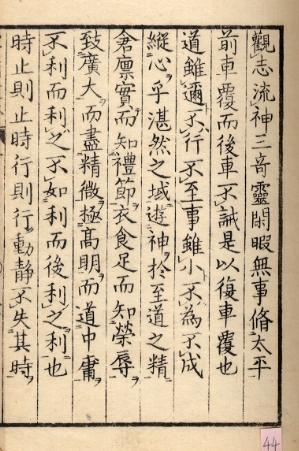 觀志流神三奇靈閑暇無事脩太平
前車覆而後車不誡是以復車覆也
道雖邇不行不至事雖小不為不成
縱心乎湛然之域遊神於至道之精
倉廪實而知禮節衣食足而知榮辱
致廣大而盡精微極髙明而道中庸
不利而利之不如利而後利之利也
時止則止時行則行動静不失其時
44